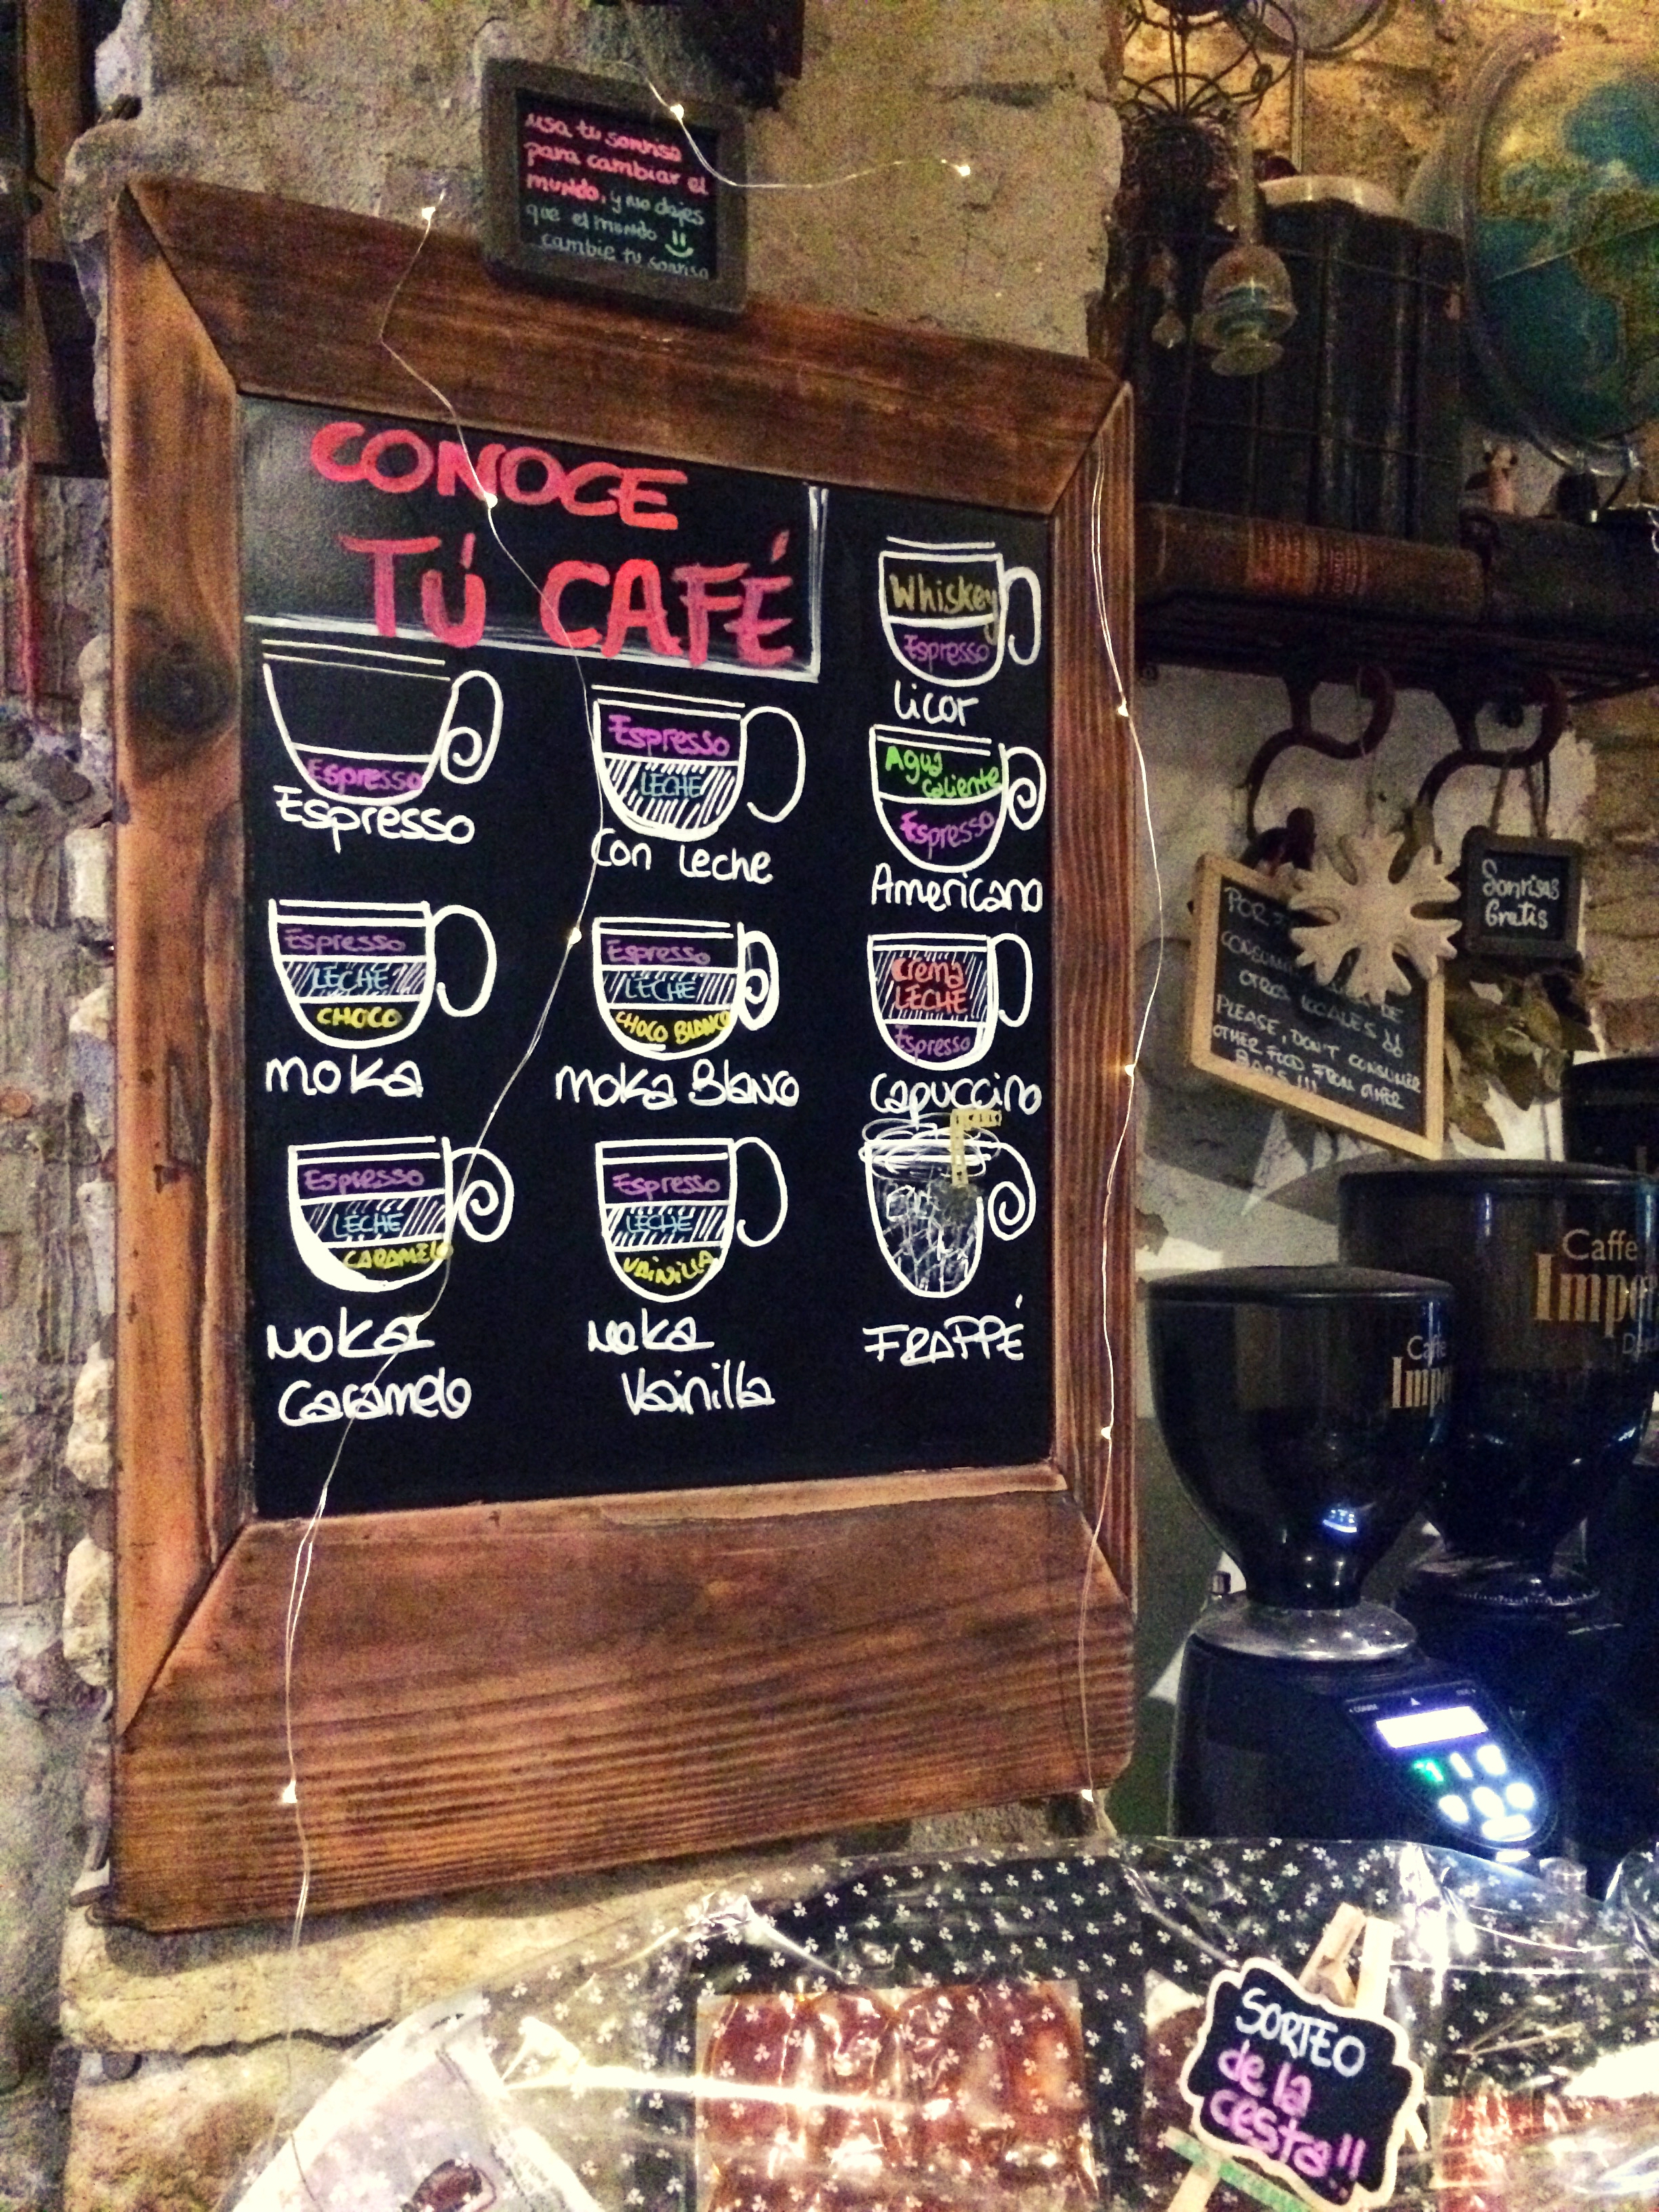 usa tu sonrisa
para cambiar el
mundo, y no dejes
que el mundo
cambie tu sonrisa
CONOCE
TÚ CAFÉ
Whiskey
Espresso
Licor
Espresso
Espresso
Espresso
LECHE
Con Leche
Agua
Caliente
Espresso
Americano
Espresso
LECHE
CHOCO
Moka
Espresso
LECHE
CHOCO BLANCO
Moka Blanco
Crema
LECHE
Espresso
Capuccino
Espresso
LECHE
CARAMELO
Moka
Caramelo
Espresso
LECHE
VAINILLA
Moka
Vainilla
FRAPPÉ
Sonrisas
Gratis
POR
DE
OTROS LOCALES
PLEASE, DON'T CONSUMER
OTHER FOOD FROM OTHER
BARS!!!
Caffe
Caffe
SORTEO
de la
cesta!!